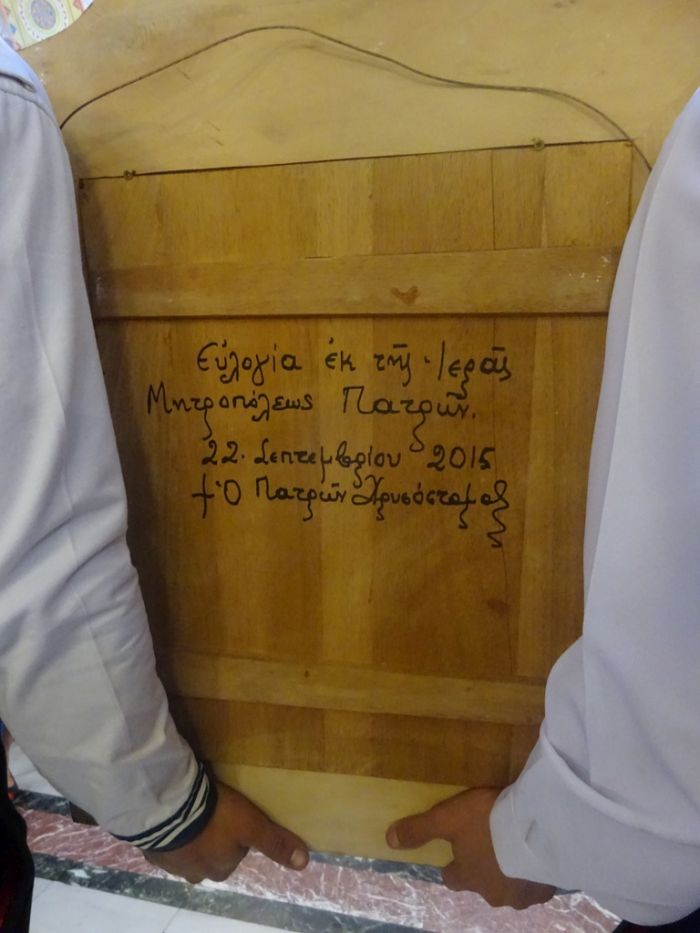 Εὐλογία ἐκ τῆς Ἱερᾶς
Μητροπόλεως Πατρῶν.
22. Σεπτεμβρίου 2015
† Ὁ Πατρῶν Χρυσόστομος